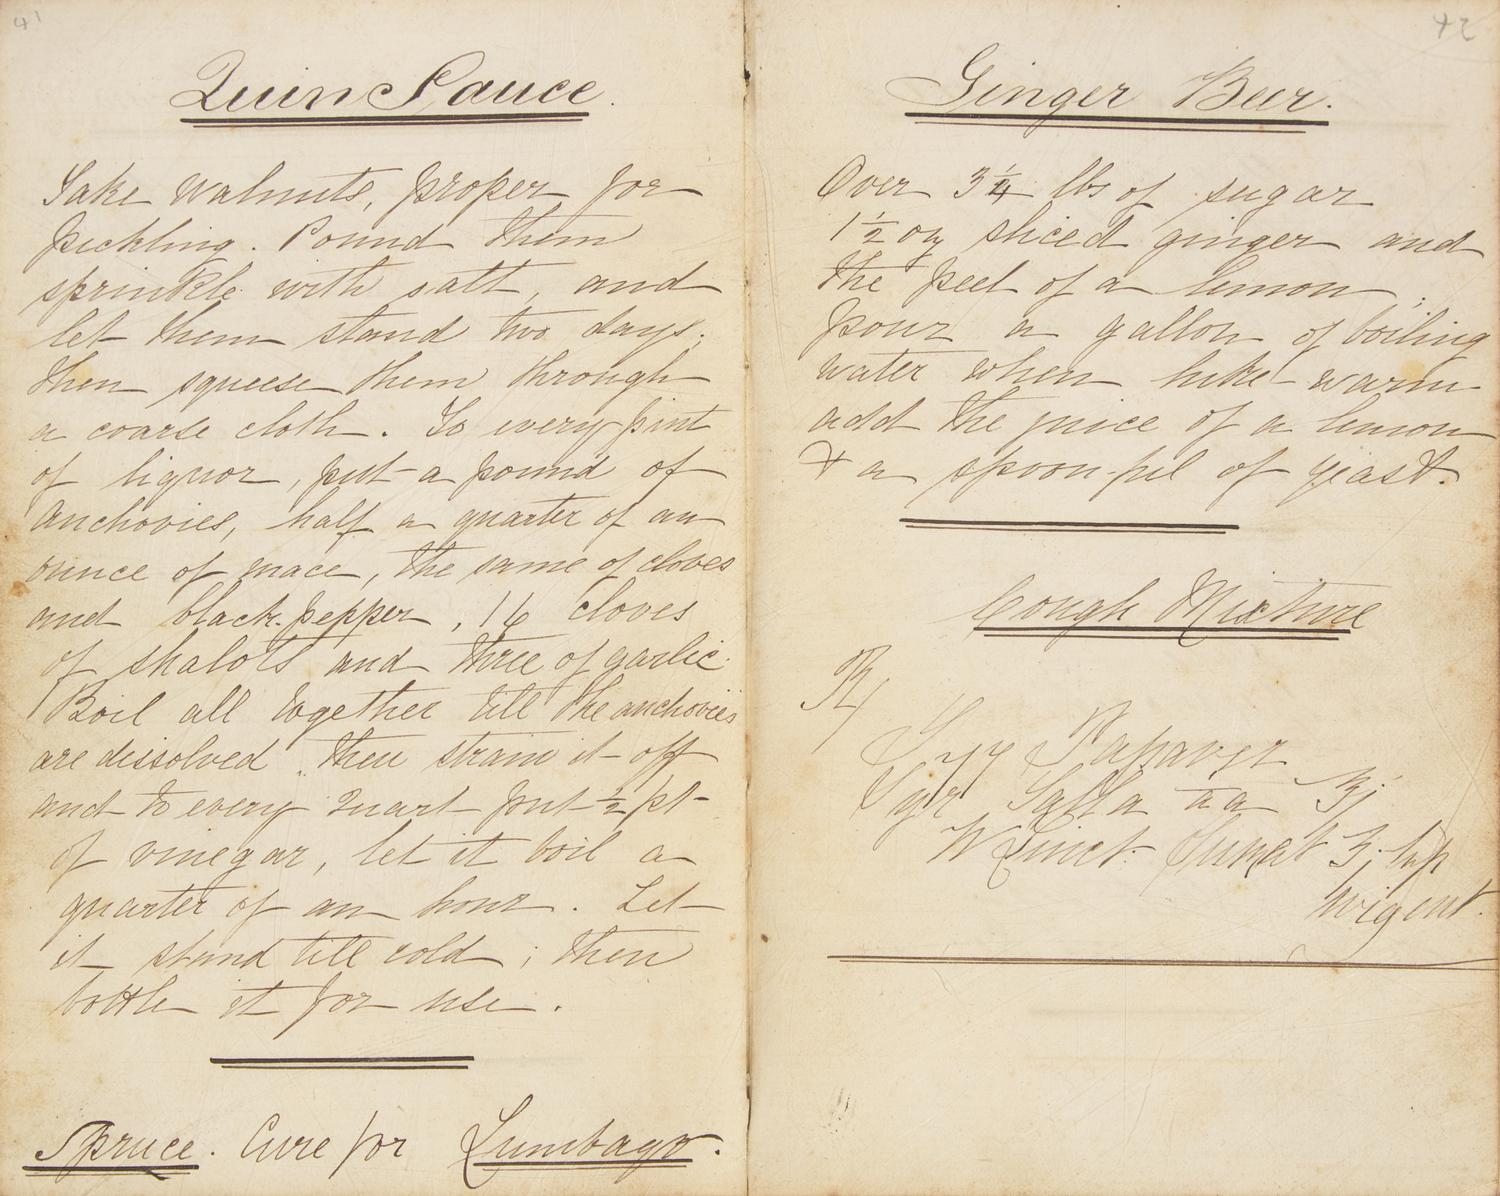 41
Quin Sauce.
Take Walnuts, proper for
pickling. Pound them
sprinkle with salt, and
let them stand two days;
then squeese them through
a coarse cloth. To every pint
of liquor, put a pound of
Anchovies, half a quarter of an
ounce of mace, the same of cloves
and black pepper, 16 cloves
of shalots and three of garlic.
Boil all together till the anchovies
are dissolved. then strain it off
and to every Quart put ½ pt
of vinegar, let it boil a
quarter of an hour. Let
it stand till cold; then
bottle it for use.
Spruce. Cure for Lumbago.
42
Ginger Beer.
Over 3¼ lbs of sugar
1½ oz sliced ginger and
the peel of a lemon.
pour a gallon of boiling
water when luke-warm
add the juice of a lemon
& a spoonful of yeast.
Cough Mixture
Rx
Syr Papaver
Syr Tolla aa ʒj
Tinct ʒj